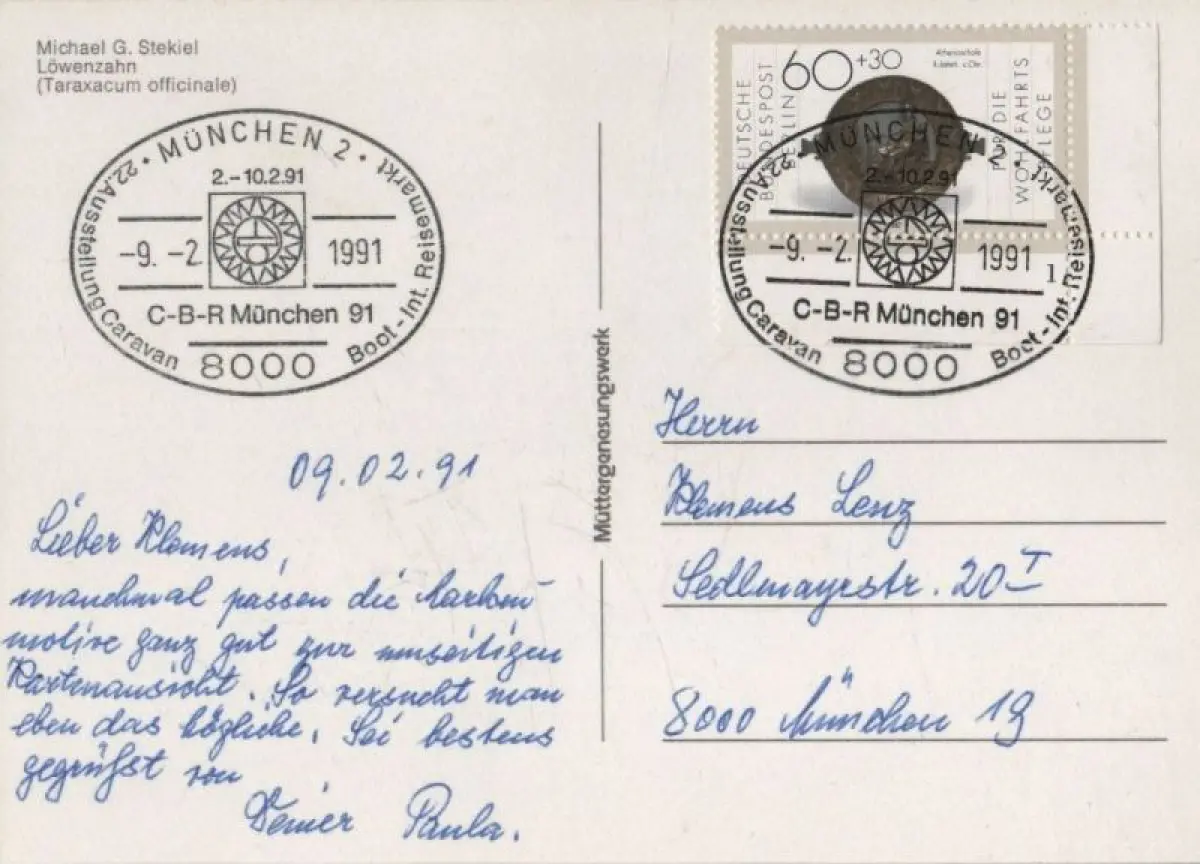 Michael G. Stekiel
Löwenzahn
(Taraxacum officinale)
22. Ausstellung Caravan • MÜNCHEN 2 • Boot - Int. Reisemarkt
2.–10.2.91
-9. -2. 1991
C-B-R München 91
8000
DEUTSCHE BUNDESPOST BERLIN
60+30
FÜR DIE WOHLFAHRTSPFLEGE
22. Ausstellung Caravan • MÜNCHEN 2 • Boot - Int. Reisemarkt
2.–10.2.91
-9. -2. 1991
1
C-B-R München 91
8000
Müttergenesungswerk
09.02.91
Lieber Klemens,
manchmal passen die Marken-
motive ganz gut zur umseitigen
Kartenansicht. So versucht man
eben das tägliche. Sei bestens
gegrüßt von
Deiner Paula.
Herrn
Klemens Lenz
Sedlmayrstr. 20 I
8000 München 19